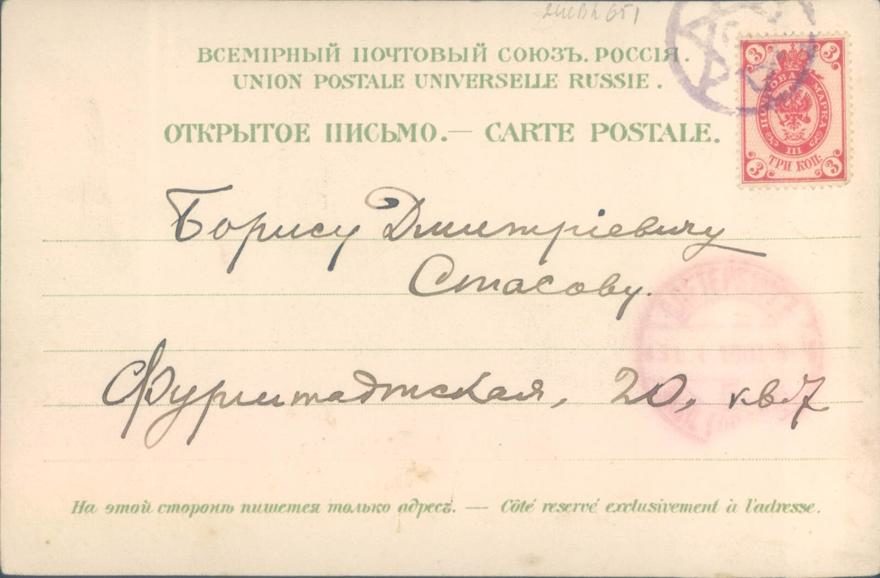 ВСЕМІРНЫЙ ПОЧТОВЫЙ СОЮЗЪ. РОССІЯ.
UNION POSTALE UNIVERSELLE RUSSIE.
ОТКРЫТОЕ ПИСЬМО.— CARTE POSTALE.
3 3
ПОЧТОВАЯ МАРКА
III
ТРИ КОП.
3 3
Борису Дмитріевичу
Стасову.
Фурштадтская, 20, кв. 7
На этой сторонѣ пишется только адресъ. — Côté reservé exclusivement à l'adresse.